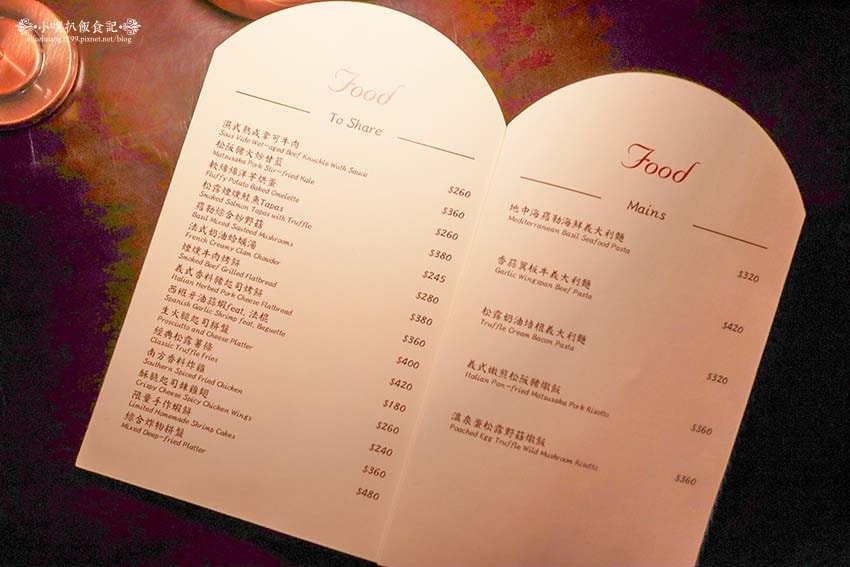 小喵扒飯食記
Food
To Share
濕式熟成拿可牛肉
Sous Vide Wet-aged Beef Knuckle Wuth Sauce
$260
松阪豬火炒甘藍
Matsusaka Pork Stir-fried Kale
$360
軟綿綿洋芋烘蛋
Fluffy Potato Baked Omelette
$260
松露煙燻鮭魚Tapas
Smoked Salmon Tapas with Truffle
$380
羅勒綜合炒野菇
Basil Mixed Sauteed Mushrooms
$245
法式奶油蛤蠣湯
French Creamy Clam Chowder
$280
煙燻牛肉烤餅
Smoked Beef Grilled Flatbread
$380
義式香料豬起司烤餅
Italian Herbed Pork Cheese Flatbread
$360
西班牙油蒜蝦feat. 法棍
Spanish Garlic Shrimp feat. Baguette
$400
生火腿起司拼盤
Prosciutto and Cheese Platter
$420
經典松露薯條
Classic Truffle Fries
$180
南方香料炸雞
Southern Spiced Fried Chicken
$260
酥脆起司辣雞翅
Crispy Cheese Spicy Chicken Wings
$240
限量手作蝦餅
Limited Homemade Shrimp Cakes
$360
綜合炸物拼盤
Mixed Deep-fried Platter
$480
Food
Mains
地中海羅勒海鮮義大利麵
Mediterranean Basil Seafood Pasta
$320
香蒜翼板牛義大利麵
Garlic Wingspan Beef Pasta
$420
松露奶油培根義大利麵
Truffle Cream Bacon Pasta
$320
義式嫩煎松阪豬燉飯
Italian Pan-fried Matsusaka Pork Risotto
$360
溫泉蛋松露野菇燉飯
Poached Egg Truffle Wild Mushroom Risotto
$360